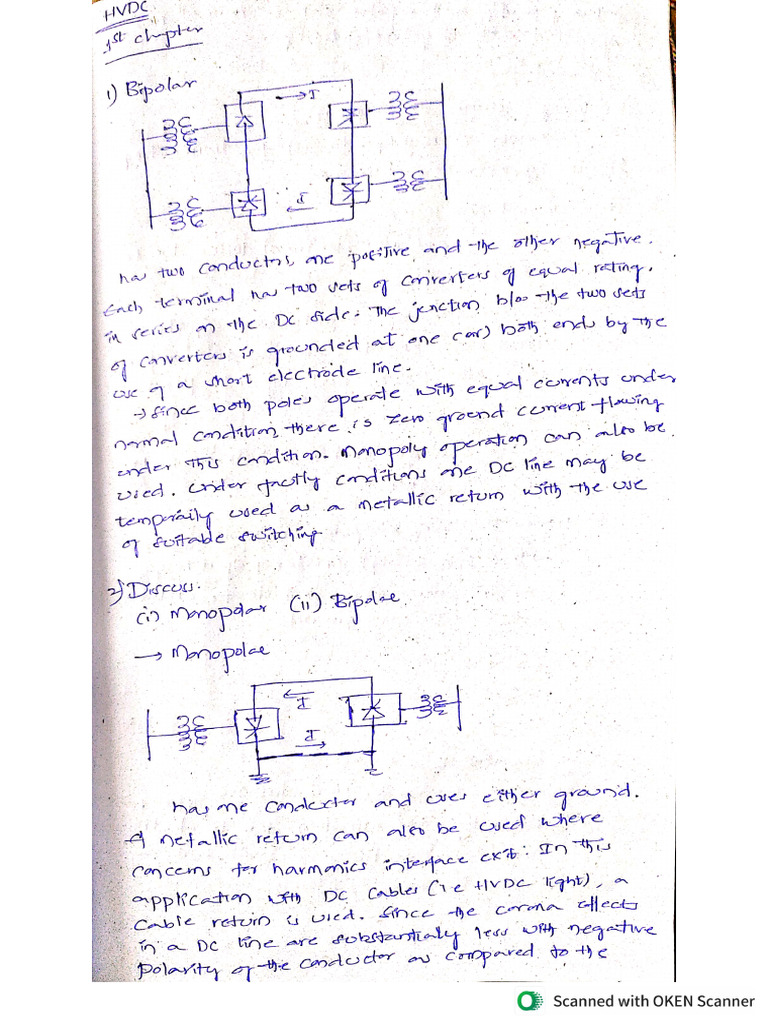 HVDC
1st chapter
1) Bipolar
→ I
I
has two conductors, one positive and the other negative.
Each terminal has two sets of converters of equal rating,
in series on the DC side. The junction b/w the two sets
of converters is grounded at one (or) both ends by the
use of a short electrode line.
→ since both poles operate with equal currents under
normal condition, there is zero ground current flowing
under this condition. Monopoly operation can also be
used. Under factly conditions one DC line may be
temporaily used as a metallic return with the use
of suitable switching
2) Discuss.
(i) Monopolar (ii) Bipolae
→ Monopolae
I
I
has one conductor and uses either ground.
A metallic return can also be used where
concerns for harmonics interface exit. In this
application with DC cables (i.e HVDC light), a
cable return is used. Since the corona effects
in a DC line are substantialy less with negative
polarity of the conductor as compared to the
Scanned with OKEN Scanner